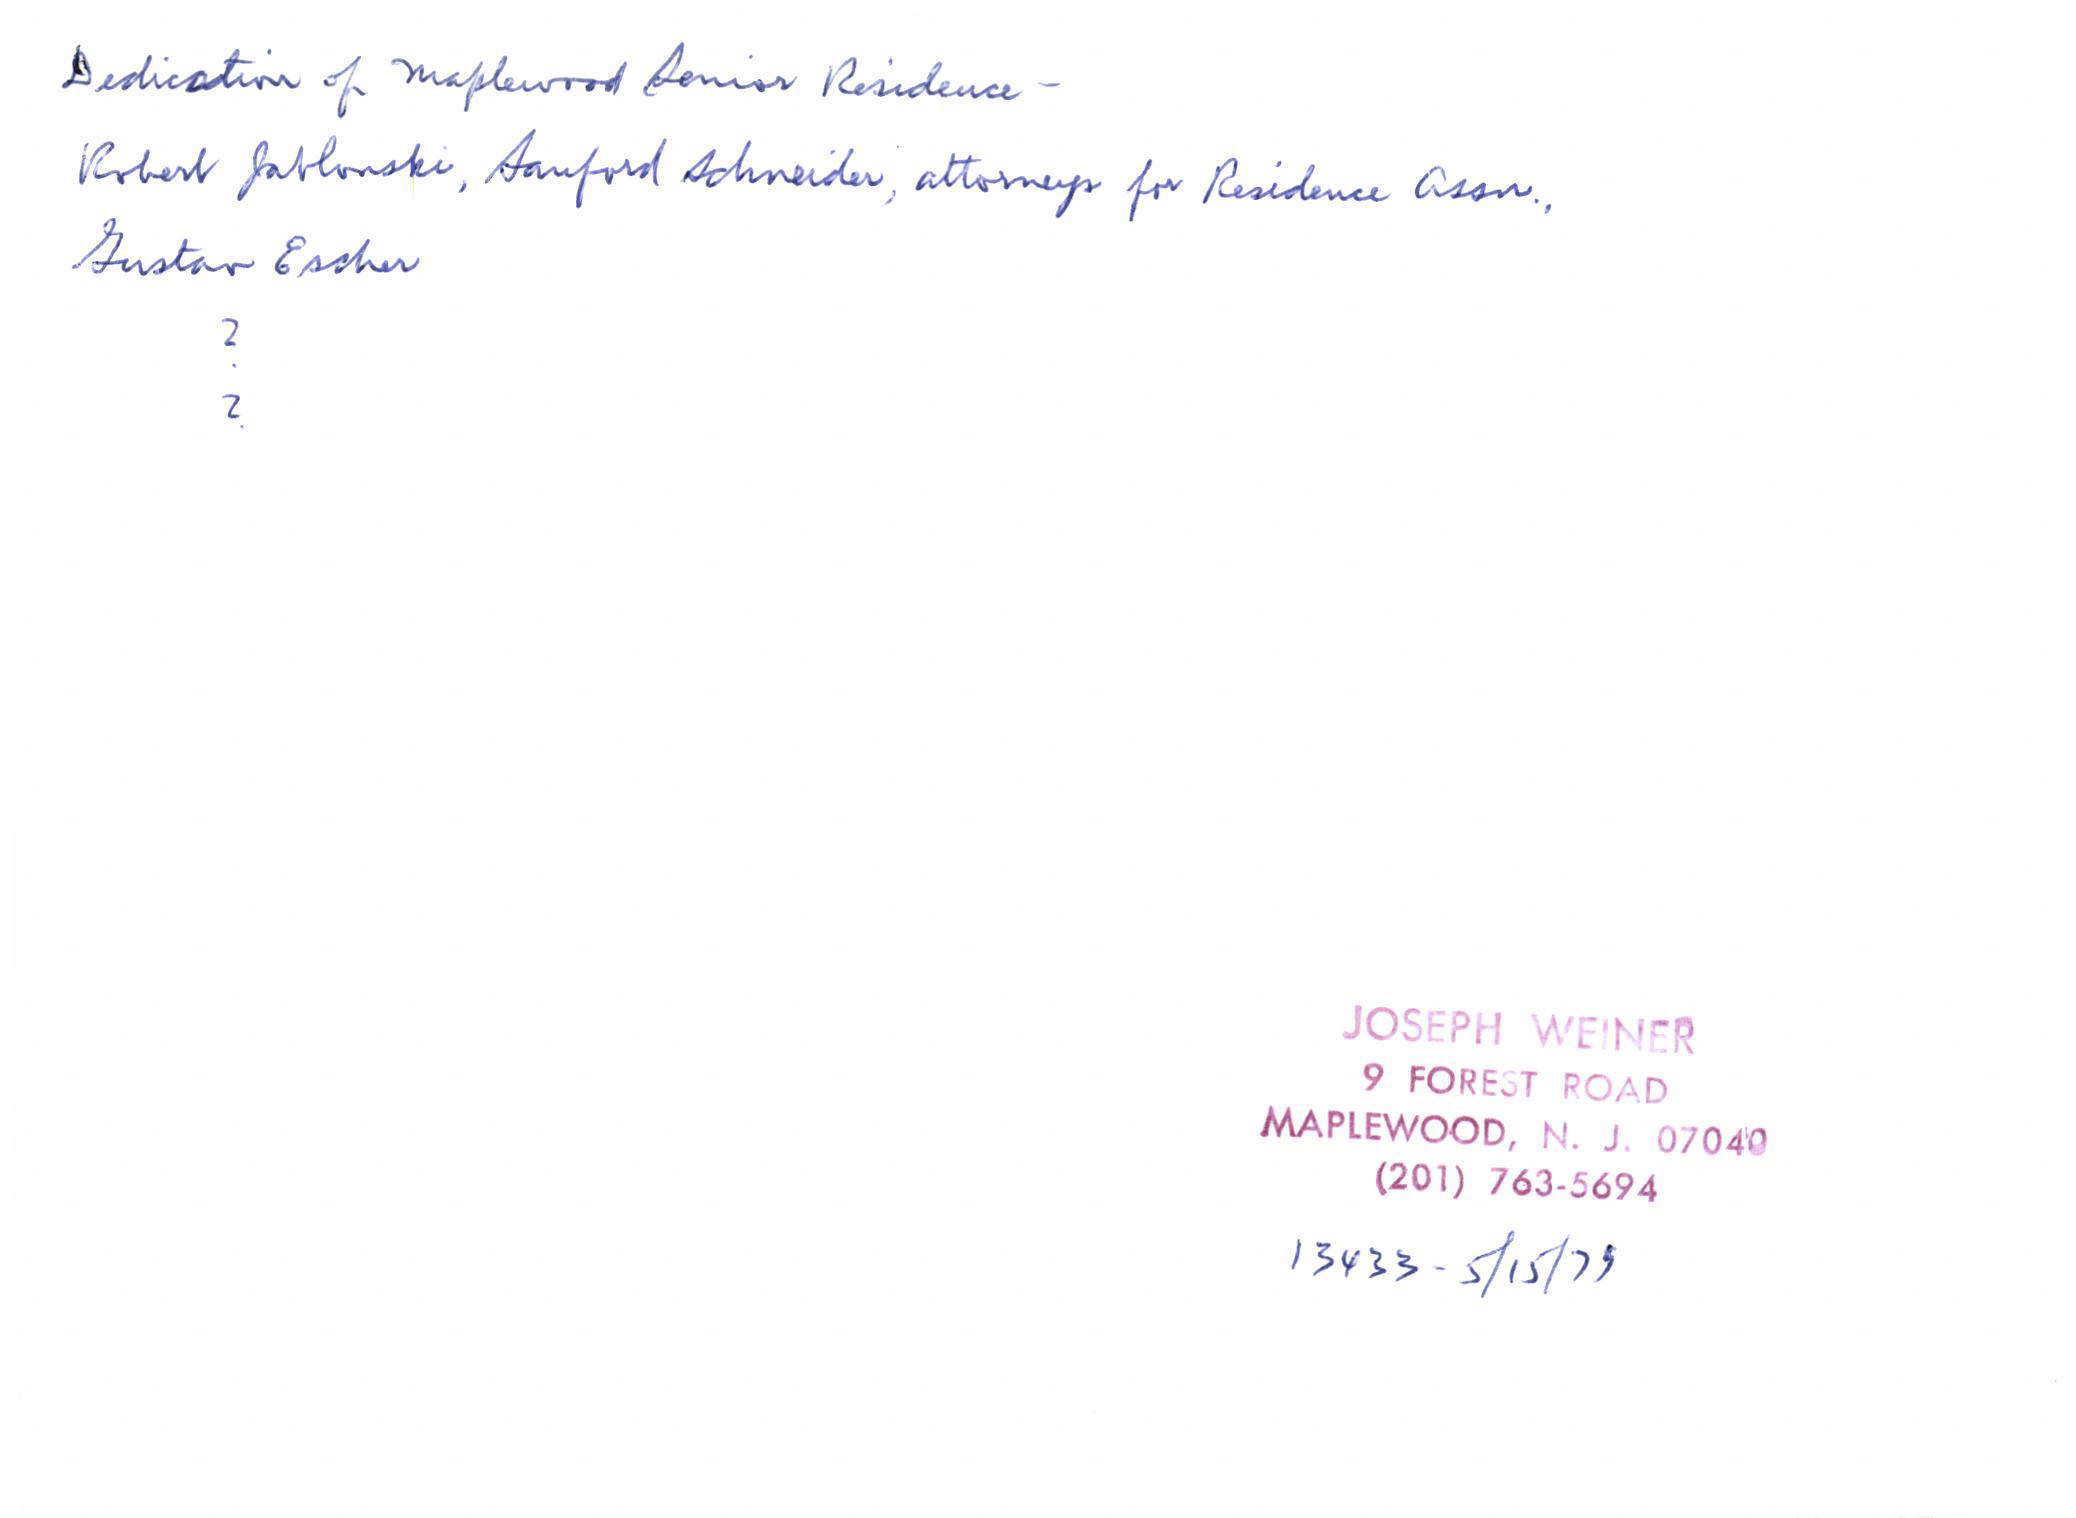 Dedication of Maplewood Senior Residence -
Robert Jablonski, Sanford Schneider, attorneys for Residence Assn.,
Gustav Escher
?
?
JOSEPH WEINER
9 FOREST ROAD
MAPLEWOOD, N. J. 07040
(201) 763-5694
13433 - 5/15/79